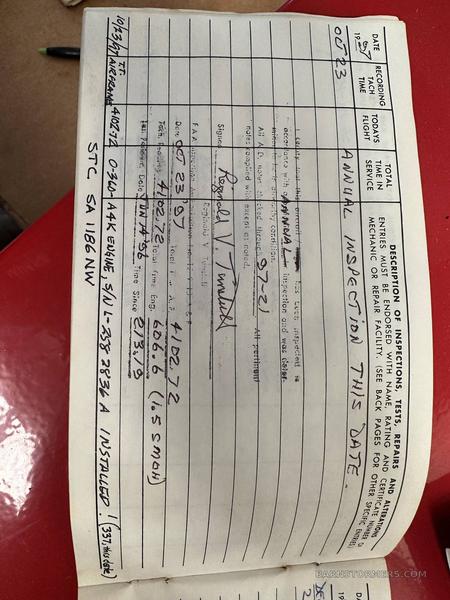 DATE
19 97
RECORDING
TACH
TIME
TODAYS
FLIGHT
TOTAL
TIME IN
SERVICE
DESCRIPTION OF INSPECTIONS, TESTS, REPAIRS AND ALTERATIONS
ENTRIES MUST BE ENDORSED WITH NAME, RATING AND CERTIFICATE NUMBER O
MECHANIC OR REPAIR FACILITY. (SEE BACK PAGES FOR OTHER SPECIFIC ENTRIES)
OCT 23
ANNUAL INSPECTION THIS DATE.
I certify that this aircraft has been inspected in
accordance with ANNUAL inspection and was
airworthy condition.
All A.D. notes checked through 97-21 All pertinent
notes complied with except as noted.
Signed Reginald V.
Reginald V.
Date OCT 23 97 Total Time A.F. 4102.72
Tach Reading 4102.72 Total Time Eng. 606.6 (16.5 SMOH)
Date JUN 14 96 Time Since 273.19
10/23/97 T.T. AIRFRAME 4102.72 O-360-A4K ENGINE, S/N L-25828 36 A INSTALLED. (337, this date)
STC SA 1186 NW
BARNSTORMERS.COM